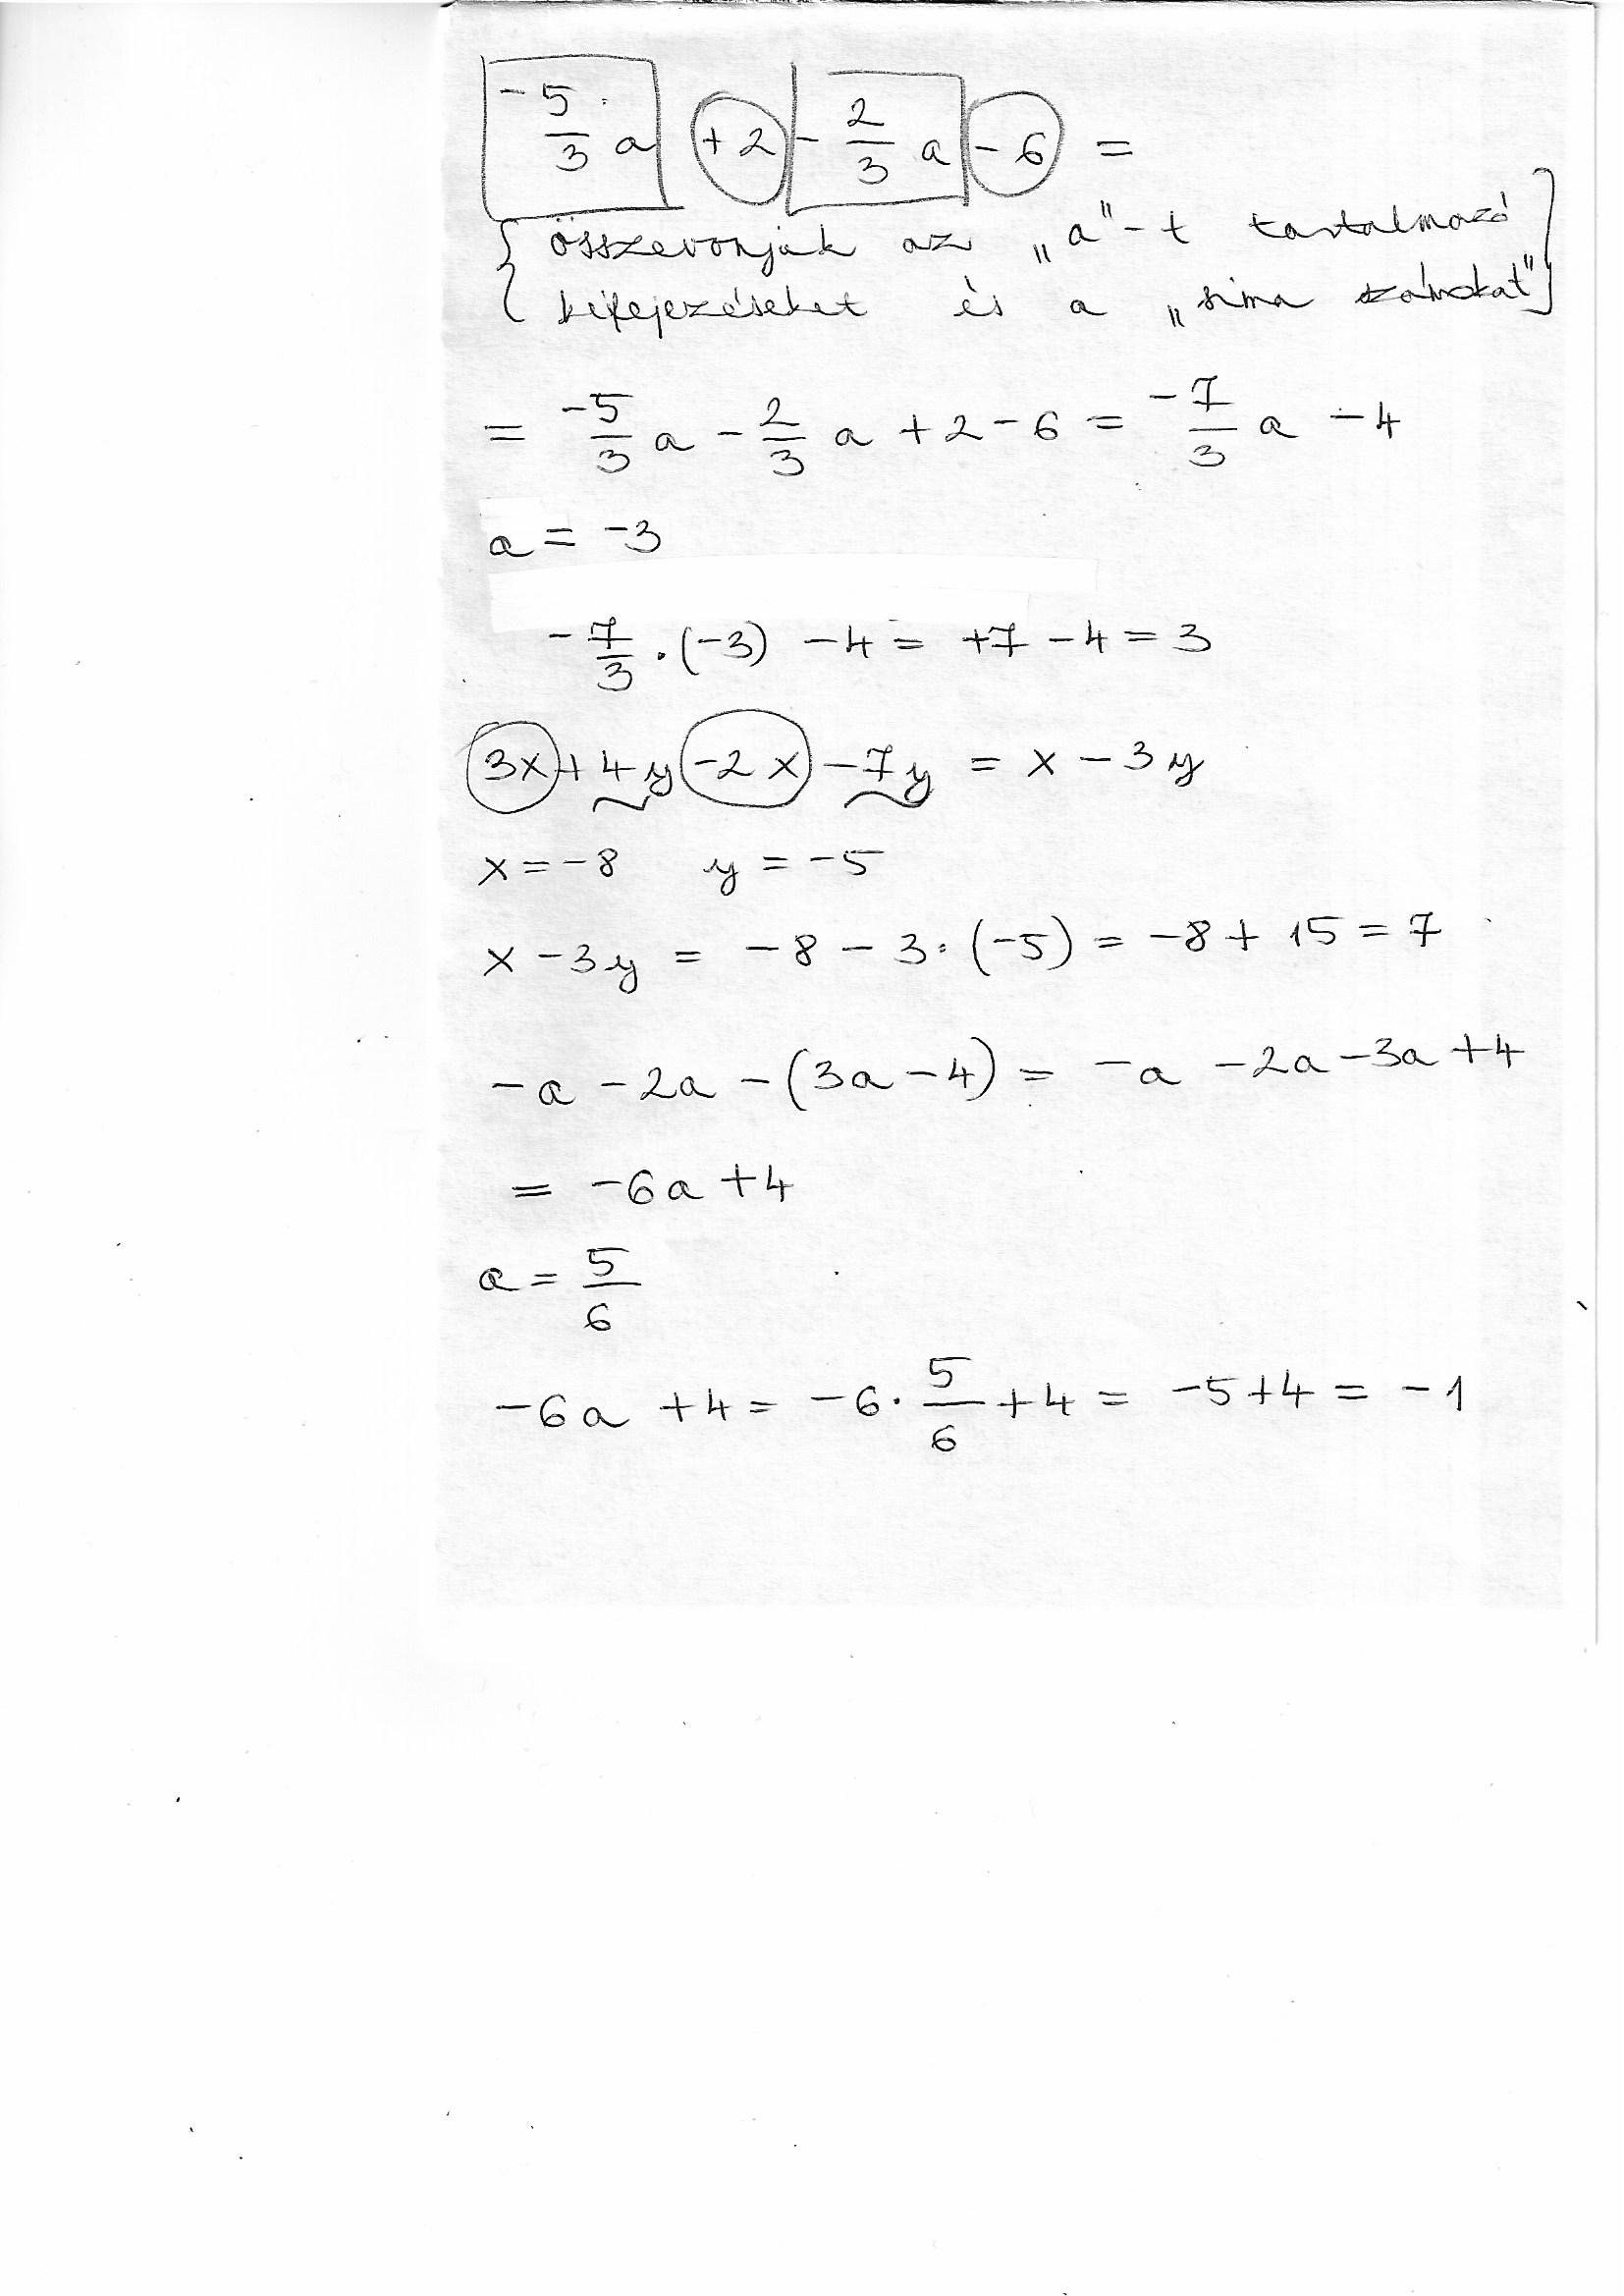 -5/3 a +2 - 2/3 a - 6 =
{ összevonjuk az „a"-t tartalmazó
kifejezéseket és a „sima számokat" }
= -5/3 a - 2/3 a + 2 - 6 = -7/3 a - 4
a = -3
-7/3 · (-3) - 4 = +7 - 4 = 3
3x + 4y - 2x - 7y = x - 3y
x = -8 y = -5
x - 3y = -8 - 3 · (-5) = -8 + 15 = 7
-a - 2a - (3a - 4) = -a - 2a - 3a + 4
= -6a + 4
a = 5/6
-6a + 4 = -6 · 5/6 + 4 = -5 + 4 = -1